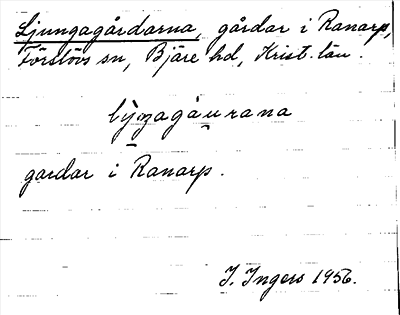 Ljungagårdarna, gårdar i Ranarp,
Förslövs sn, Bjäre hd, Krist. län.
gårdar i Ranarp.
I. Ingers 1956.